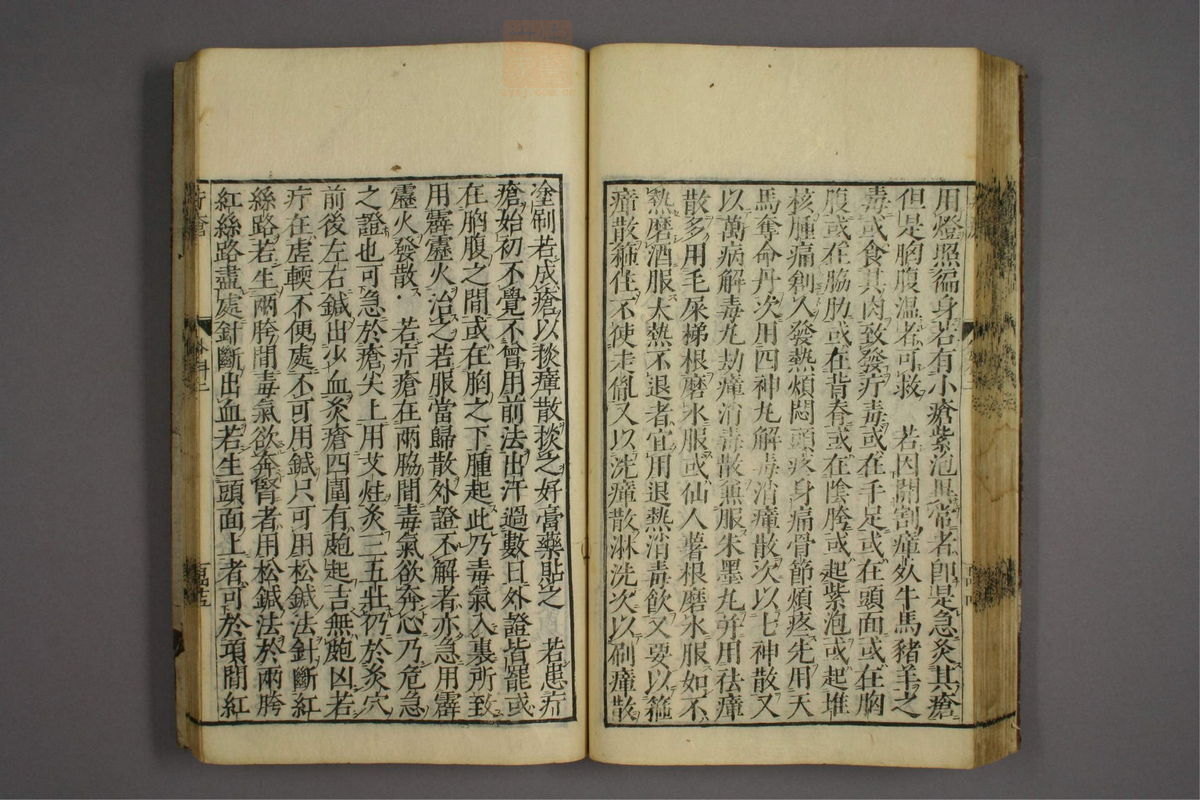 用燈照徧身若有小瘡紫泡異常者卽是急灸其瘡
但是胸腹溫者可救 若因開割瘴死牛馬豬羊之
毒或食其肉致發疔毒或在手足或在頭面或在胸
腹或在脇肋或在背脊或在陰胯或起紫泡或起堆
核腫痛創入發熱煩悶頭疼身痛骨節煩疼先用天
馬奪命丹次用四神丸解毒消瘴散次以七神散又
以萬病解毒丸劫瘴消毒散無服朱墨丸幷用祛瘴
散多用毛屎梯根磨水服或仙人薯根磨水服如不
熱磨酒服大熱不退者宜用退熱消毒飲又要以箍
瘴散箍住不使走胤又以洗瘴散淋洗次以刷瘴散
塗刷若成瘡以掞瘴散掞之好膏藥貼之 若患疔
瘡始初不覺不曾用前法出汗過數日外證皆罷或
在胸腹之間或在胸之下腫起此乃毒氣入裏所致
用霹靂火治之若服當歸散外證不解者亦急用霹
靂火發散 若疔瘡在兩脇間毒氣欲奔心乃危急
之證也可急於瘡尖上用艾炷灸三五壯仍於灸穴
前後左右鍼出少血灸瘡四圍有皰起吉無皰凶若
疔在虛輭不便處不可用鍼只可用松鍼法針斷紅
絲路若生兩胯間毒氣欲奔腎者用松鍼法於兩胯
紅絲路盡處針斷出血若生頭面上者可於項間紅